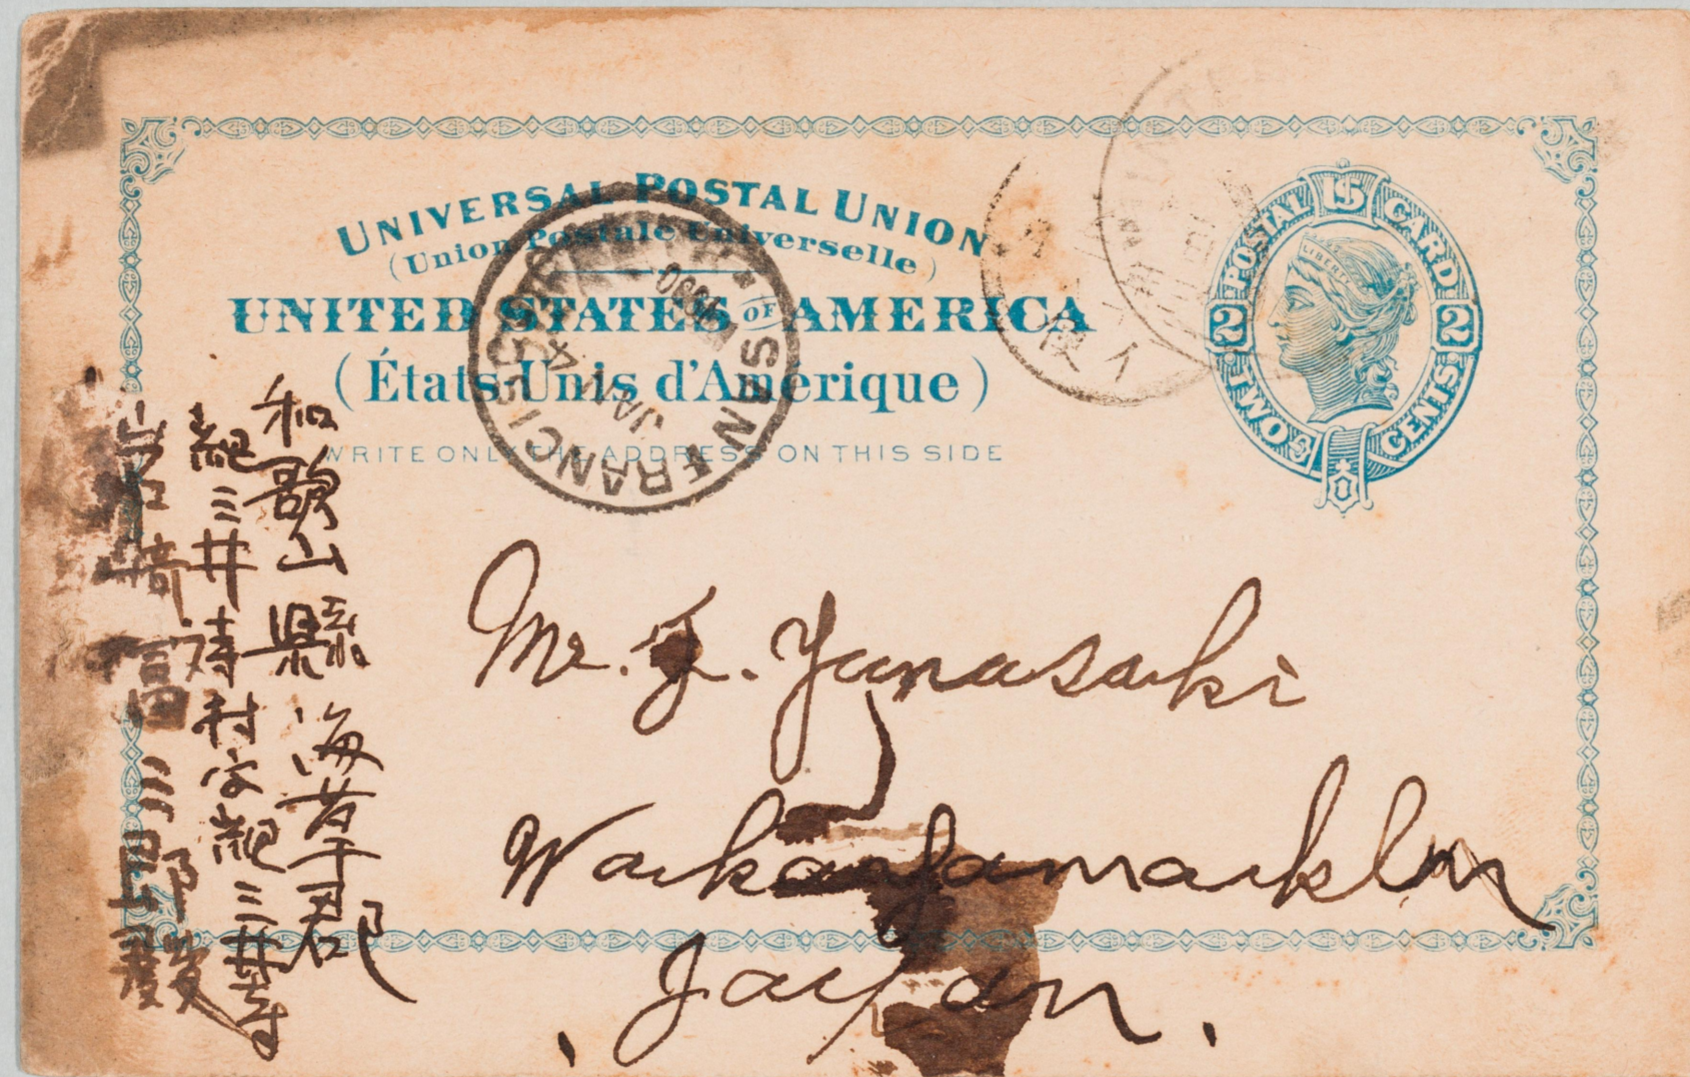 UNIVERSAL POSTAL UNION
(Union Postale Universelle)
UNITED STATES OF AMERICA
(États-Unis d'Amérique)
WRITE ONLY THE ADDRESS ON THIS SIDE
POSTAL CARD
US
LIBERTY
2 2
TWO CENTS
SAN FRANCISCO
JAN 4
Mr. Yamasaki
Wakayamaken
Japan.
和歌山縣海草郡
紀三井寺村字紀三井寺
山崎富三郎殿